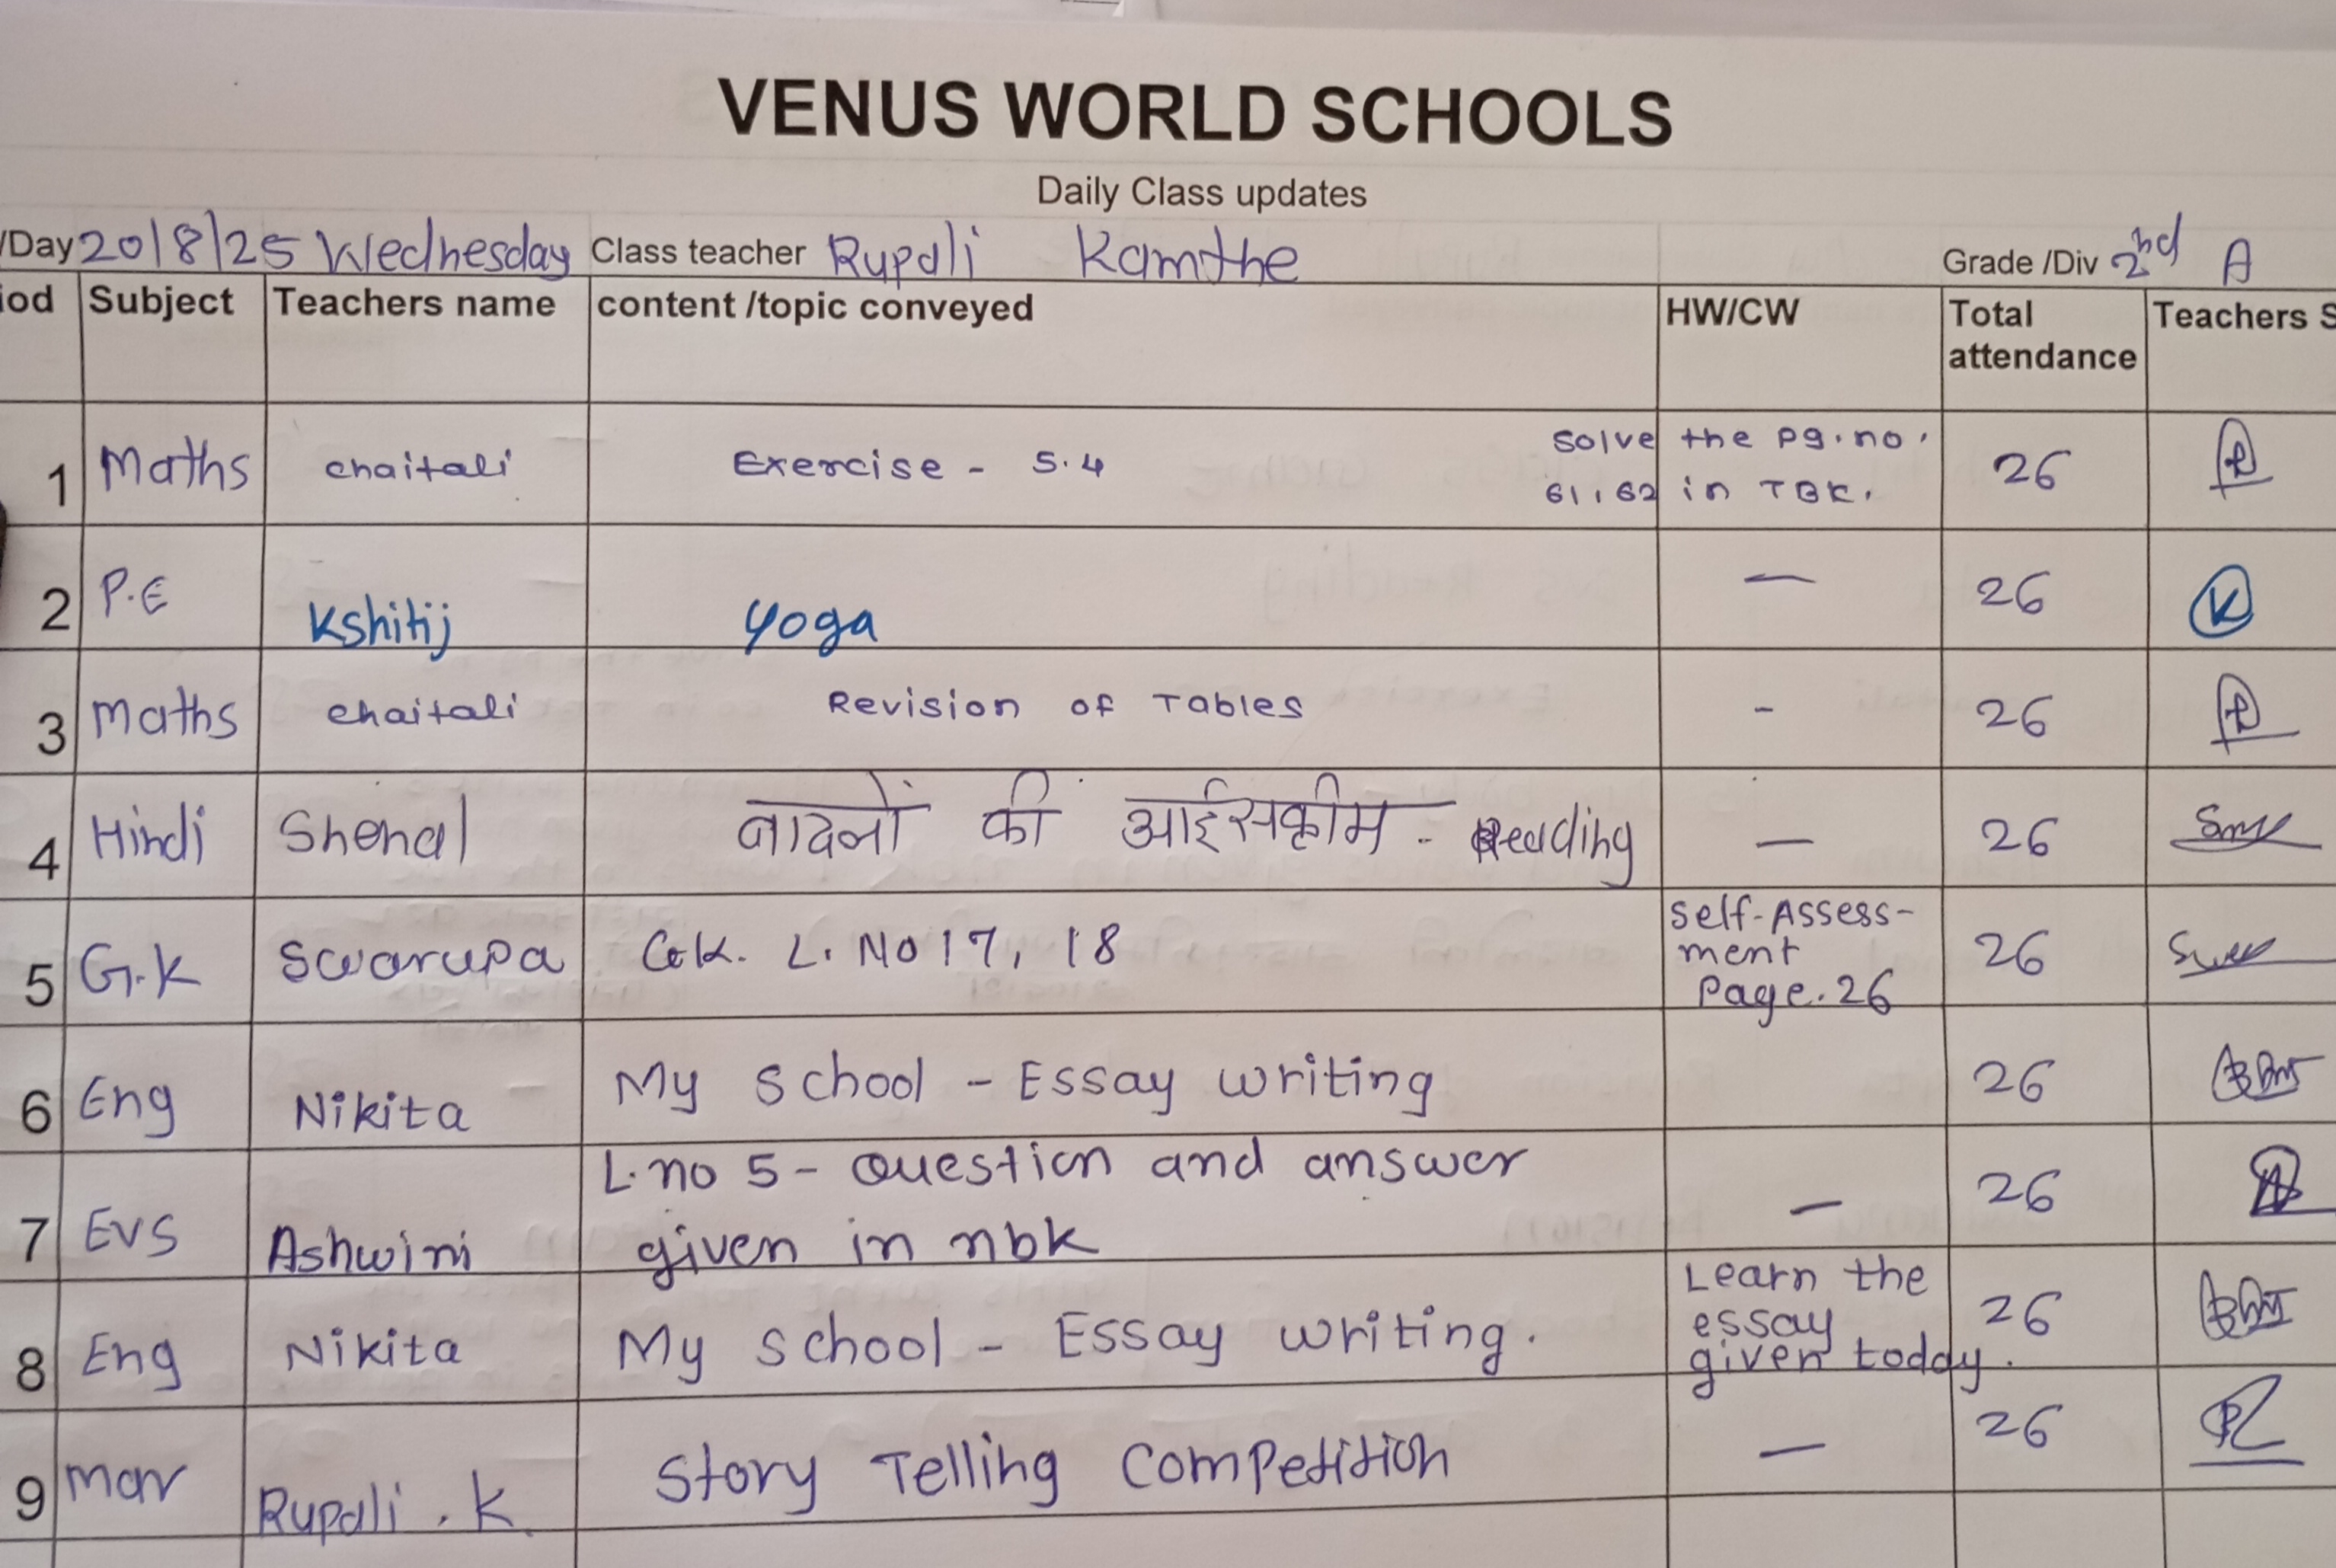 VENUS WORLD SCHOOLS
Daily Class updates
/Day 20/8/25 Wednesday Class teacher Rupali Kamthe Grade /Div 2nd A
iod Subject Teachers name content /topic conveyed HW/CW Total attendance Teachers S
1 Maths chaitali Exercise - 5.4 Solve the pg. no. 61, 62 in TBK. 26
2 P.E Kshitij Yoga — 26 K
3 Maths chaitali Revision of Tables - 26
4 Hindi Snehal बादलों की आईसक्रीम - Reading — 26
5 G.K Swarupa G.K. L. No 17, 18 Self-Assess-ment Page. 26 26
6 Eng Nikita My school - Essay writing 26
7 EVS Ashwini L.no 5 - Question and answer given in nbk — 26
8 Eng Nikita My school - Essay writing. Learn the essay given today. 26
9 Mar Rupali . K. Story Telling Competition — 26